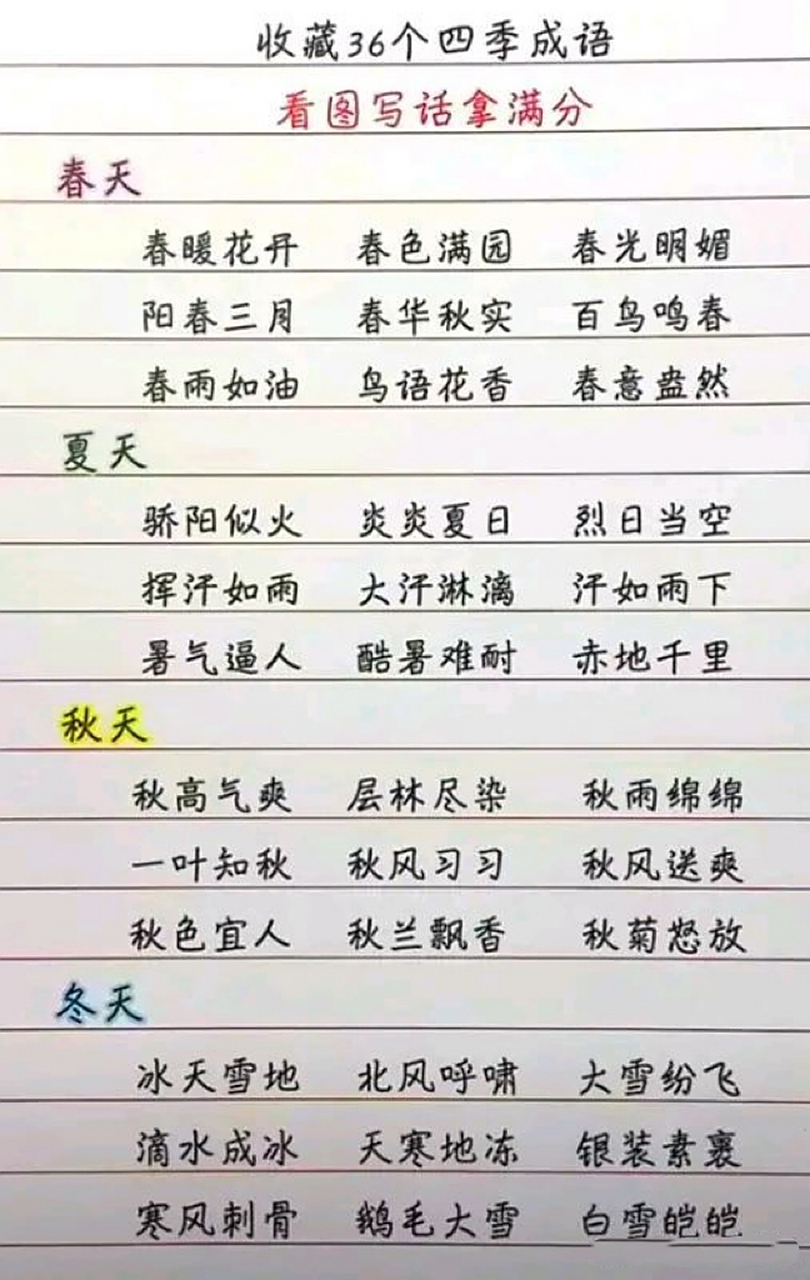 收藏36个四季成语
看图写话拿满分
春天
春暖花开 春色满园 春光明媚
阳春三月 春华秋实 百鸟鸣春
春雨如油 鸟语花香 春意盎然
夏天
骄阳似火 炎炎夏日 烈日当空
挥汗如雨 大汗淋漓 汗如雨下
暑气逼人 酷暑难耐 赤地千里
秋天
秋高气爽 层林尽染 秋雨绵绵
一叶知秋 秋风习习 秋风送爽
秋色宜人 秋兰飘香 秋菊怒放
冬天
冰天雪地 北风呼啸 大雪纷飞
滴水成冰 天寒地冻 银装素裹
寒风刺骨 鹅毛大雪 白雪皑皑